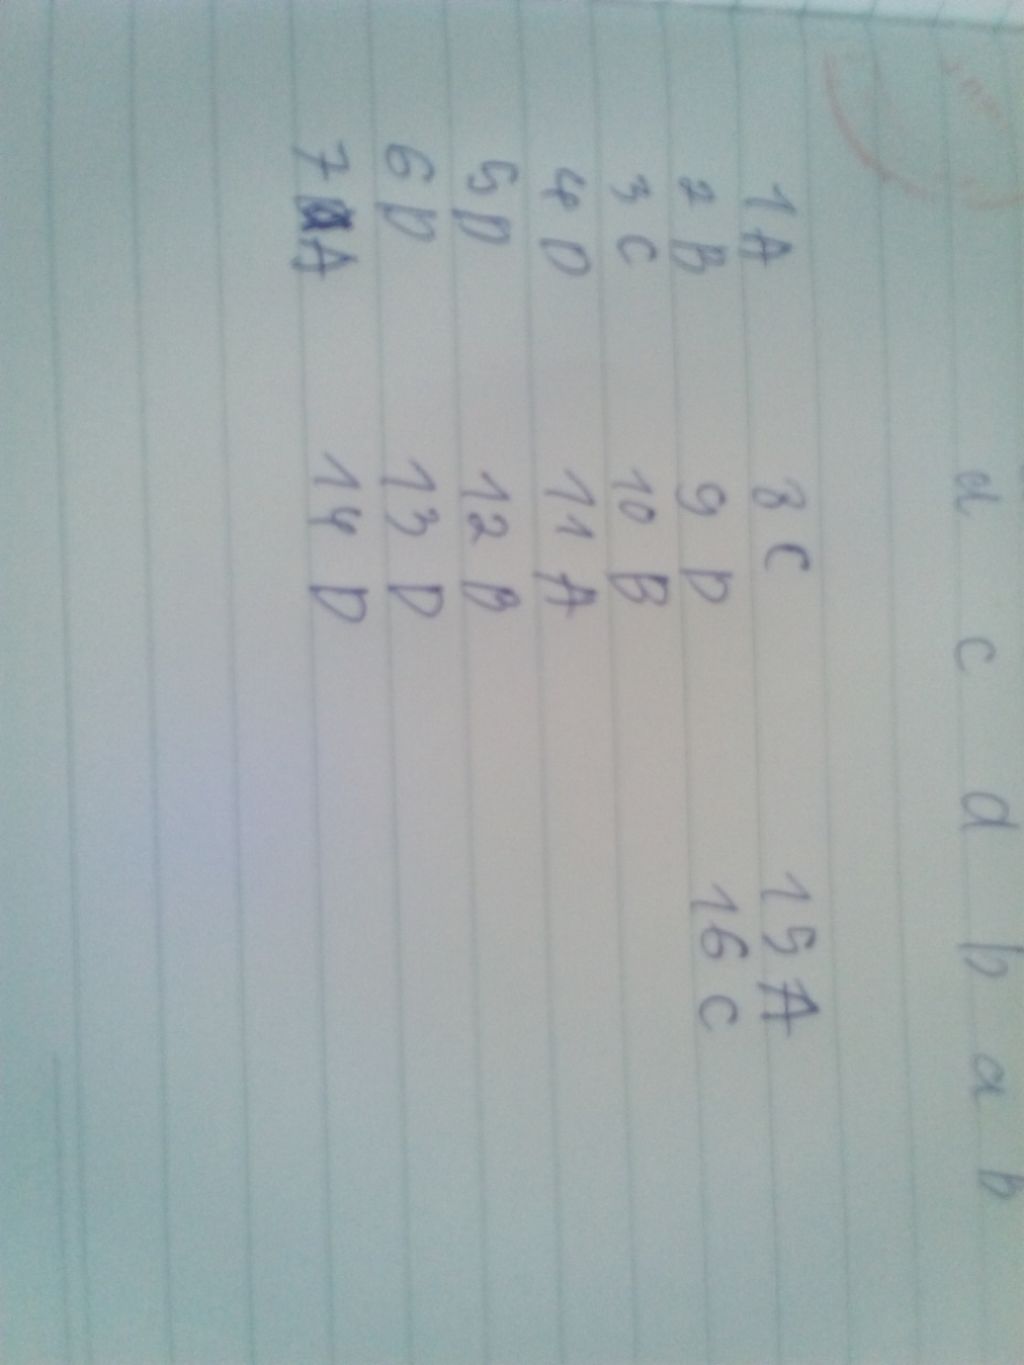 d c d b a b
1 A 8 C 15 A
2 B 9 D 16 C
3 C 10 B
4 D 11 A
5 D 12 B
6 D 13 D
7 A 14 D